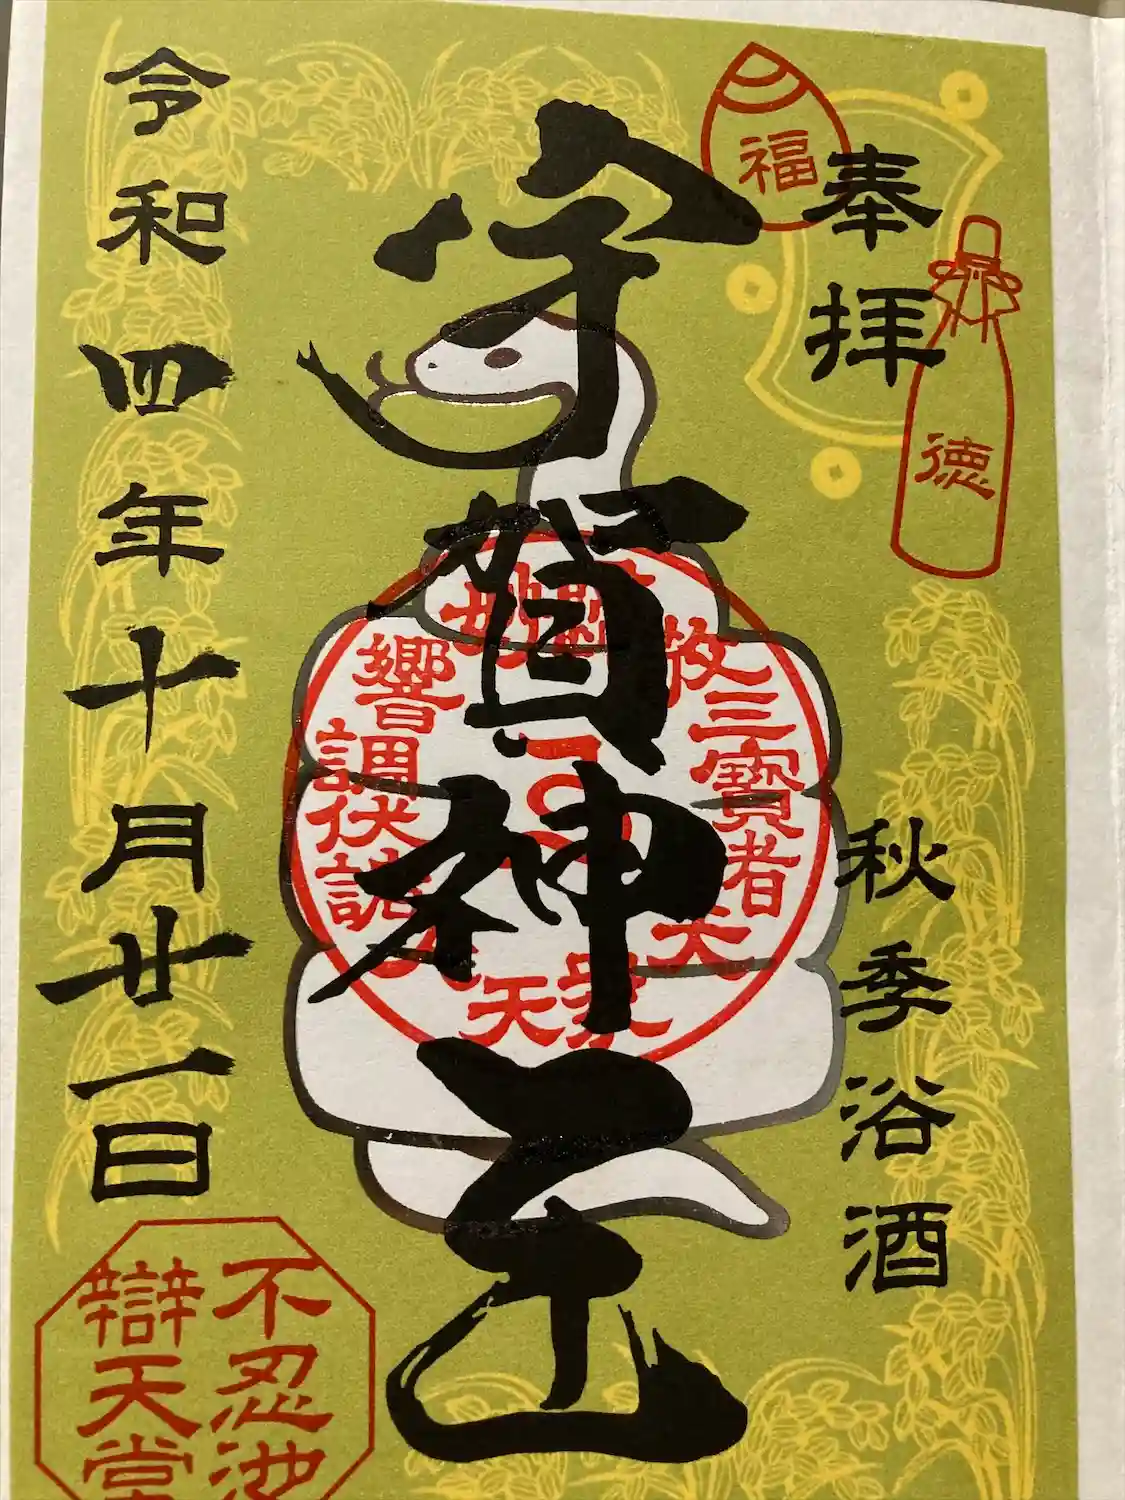 奉拝
福
徳
秋季浴酒
宇賀神王
三寶者大
天
響調伏
令和四年十月廿一日
不忍池
辯天堂